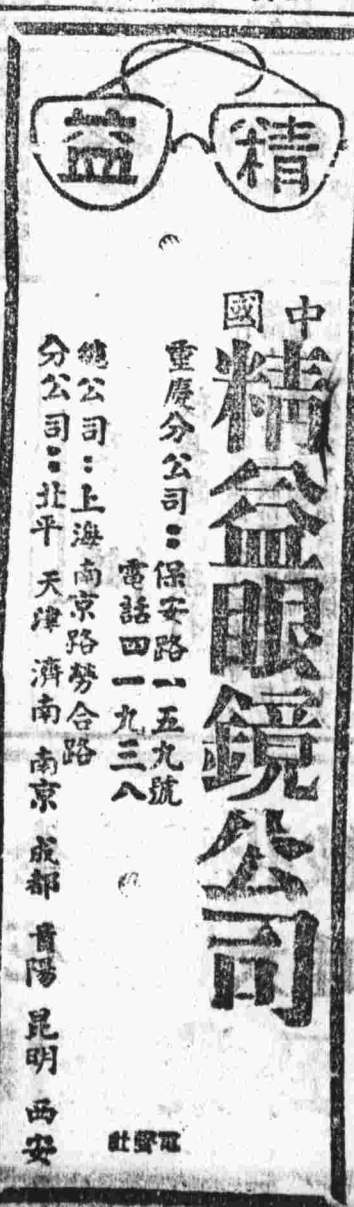 精益
中國
精益眼鏡公司
重慶分公司：保安路一五九號
電話四一九三八
總公司：上海南京路勞合路
分公司：北平 天津 濟南 南京 成都 貴陽 昆明 西安